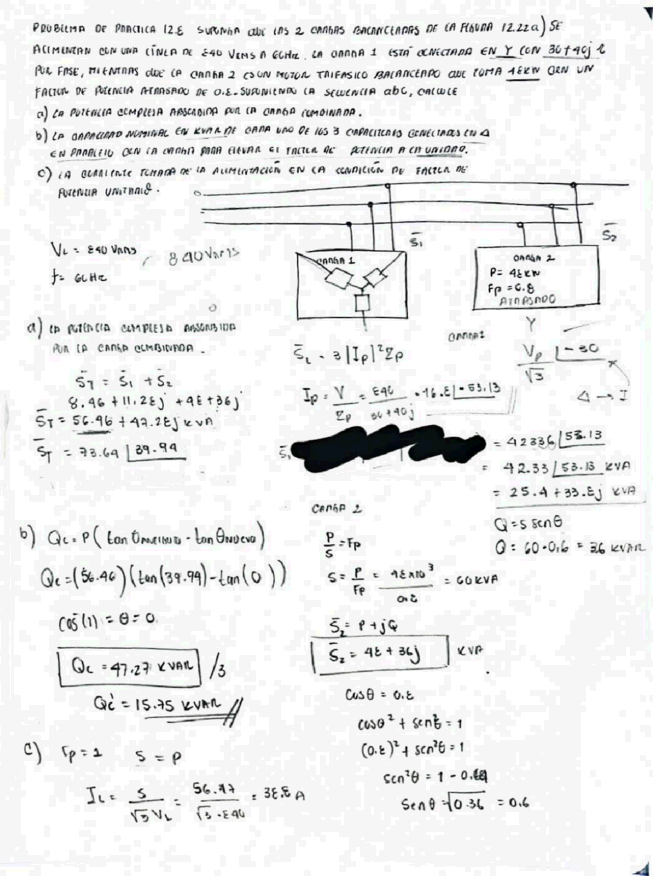 PROBLEMA DE PRACTICA 12.8 SUPONGA QUE LAS 2 CARGAS BALANCEADAS DE LA FIGURA 12.22a) SE
ALIMENTAN CON UNA LÍNEA DE 840 VRMS A 60Hz. LA CARGA 1 ESTÁ CONECTADA EN Y CON 30+40j
POR FASE, MIENTRAS QUE LA CARGA 2 ES UN MOTOR TRIFASICO BALANCEADO QUE TOMA 48KW CON UN
FACTOR DE POTENCIA ATRASADO DE 0.8. SUPONIENDO LA SECUENCIA abc, CALCULE
a) LA POTENCIA COMPLEJA ABSORBIDA POR LA CARGA COMBINADA.
b) LA CAPACIDAD NOMINAL EN KVAR DE CADA UNO DE LOS 3 CAPACITORES CONECTADOS EN Δ
EN PARALELO CON LA CARGA PARA ELEVAR EL FACTOR DE POTENCIA A LA UNIDAD.
c) LA CORRIENTE TOMADA DE LA ALIMENTACIÓN EN LA CONDICIÓN DE FACTOR DE
POTENCIA UNITARIO.
VL = 840 VRMS
840 Vrms
f= 60Hz
S̄1
S̄2
CARGA 1
CARGA 2
P= 48KW
Fp = 0.8
ATRASADO
a) LA POTENCIA COMPLEJA ABSORBIDA
POR LA CARGA COMBINADA.
S̄T = S̄1 + S̄2
8.46 + 11.28j + 48 + 36j
S̄T = 56.46 + 47.28j KVA
S̄T = 73.64 ∠39.94
S̄1 = 3|Ip|²Zp
CARGA 1
Ip = V/Zp = 840/30+40j = 16.8 ∠-53.13
Y
Vp/√3 ∠-30
Δ → Y
= 42336 ∠53.13
= 42.33 ∠53.13 KVA
= 25.4 + 33.8j KVA
Q = S senθ
Q = 60·0.6 = 36 KVAR
CARGA 2
P/S = Fp
S = P/Fp = 48x10³/0.8 = 60KVA
S̄2 = P + jQ
S̄2 = 48 + 36j KVA
cosθ = 0.8
cosθ² + senθ² = 1
(0.8)² + sen²θ = 1
sen²θ = 1 - 0.64
senθ = √0.36 = 0.6
b) Qc = P(tan θ - tan θNUEVO)
Qc = (56.46)(tan(39.94) - tan(0))
cos⁻(1) = θ = 0
Qc = 47.27 KVAR /3
Qc' = 15.75 KVAR
c) Fp = 1 S = P
IL = S/√3 VL = 56.47/√3·840 = 38.8 A